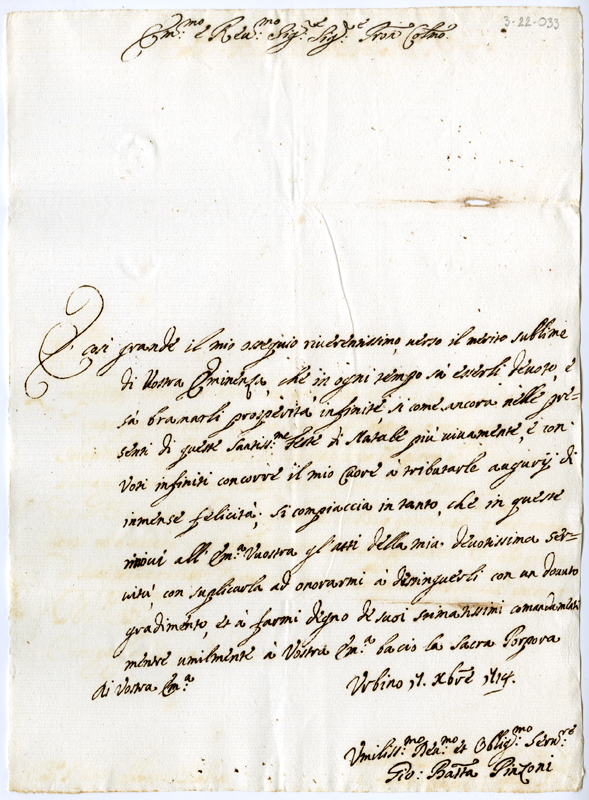 3-22-033
Em.mo e Reu.mo Sig.re Sig.re Pron Colmo
È cosi grande il mio ossequio riuerentissimo, uerso il merito sublime
di Vostra Eminenza, che in ogni tempo sà esserli deuoto, e
sà bramarli prosperità infinite, si come ancora nelle pre-
senti di queste Santiss.me feste di Natale più uiuamente, e con
Voti infiniti concorre il mio Cuore à tributarle augurij di
inmense felicità; si compiaccia in tanto, che in queste
rinoui all' Em.a Vuostra gl'atti della mia deuotissima ser-
uitù, con suplicarla ad onorarmi à distinguerli con un douuto
gradimento, et à farmi degno de suoi stimatissimi comandamenti
mentre umilmente à Vostra Em.a bacio la Sacra Porpora
Di Vostra Em.a Vrbino 17. Xbre 1714.
Vmiliss.mo Deu.mo et Oblig.mo Seru.re
Gio: Batta Pinzoni